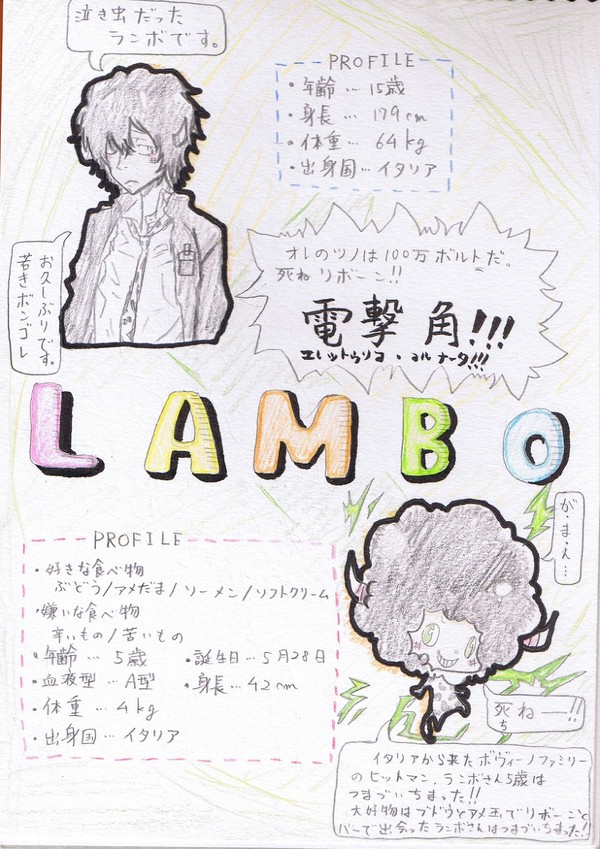 泣き虫だった
ランボです。
PROFILE
・年齢…15歳
・身長…179cm
・体重…64kg
・出身国…イタリア
お久しぶりです。
若きボンゴレ
オレのツノは100万ボルトだ。
死ねリボーン!!
電撃角!!!
エレットゥリコ・コルナータ!!!
LAMBO
PROFILE
・好きな食べ物
ぶどう/アメだま/ソーメン/ソフトクリーム
・嫌いな食べ物
辛いもの/苦いもの
・年齢…5歳 ・誕生日…5月28日
・血液型…A型 ・身長…42cm
・体重…4kg
・出身国…イタリア
が・ま・ん…
死ねー!!
ち
イタリアから来たボヴィーノファミリー
のヒットマン、ランボさん5歳は
つまづいちまった!!
大好物はブドウとアメ玉でリボーンと
バーで出会ったランボさんはつまづいちまった!